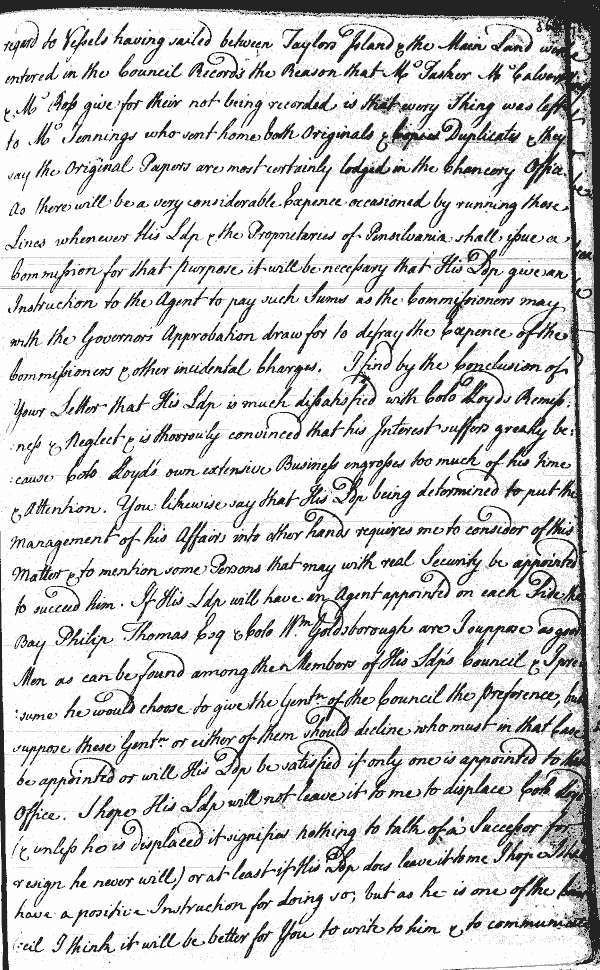 regard to Vessels having sailed between Taylors Island & the Main Land were
entered in the Council Records the Reason that Mr. Tasker Mr. Calvert
& Mr. Ross give for their not being recorded is that every Thing was left
to Mr. Jennings who sent home both Originals & Copies Duplicates & they
say the Original Papers are most certainly lodged in the Chancery Office.
As there will be a very considerable Expence occasioned by running those
Lines whenever His Ldp & the Proprietaries of Pensilvania shall issue a
Commission for that purpose it will be necessary that His Ldp give an
Instruction to the Agent to pay such Sums as the Commissioners may
with the Governors Approbation draw for to defray the Expence of the
Commissioners & other incidental Charges. I find by the Conclusion of
Your Letter that His Ldp is much dissatisfied with Colo Lloyds Remiss:
:ness & Neglect & is thorrouly convinced that his Interest suffers greatly be:
:cause Colo Lloyd's own extensive Business engrosses too much of his time
& Attention. You likewise say that His Ldp being determined to put the
management of his Affairs into other hands requires me to consider of this
Matter & to mention some Persons that may with real Security be appointed
to succeed him. If His Ldp will have an Agent appointed on each Side the
Bay Philip Thomas Esq & Colo Wm. Goldsborough are I suppose as good
Men as can be found among the Members of His Ldp's Council & I pre
:sume he would choose to give the Gentn. of the Council the Preference, but
suppose these Gentn. or either of them should decline who must in that Case
be appointed or will His Ldp be satisfied if only one is appointed to that
Office. I hope His Ldp will not leave it to me to displace Colo Lloyd
(& unless he is displaced it signifies nothing to talk of a Successor for
resign he never will) or at least if His Ldp does leave it to me I hope I shall
have a positive Instruction for doing so; but as he is one of the Coun
:cil I think it will be better for You to write to him & to communicate